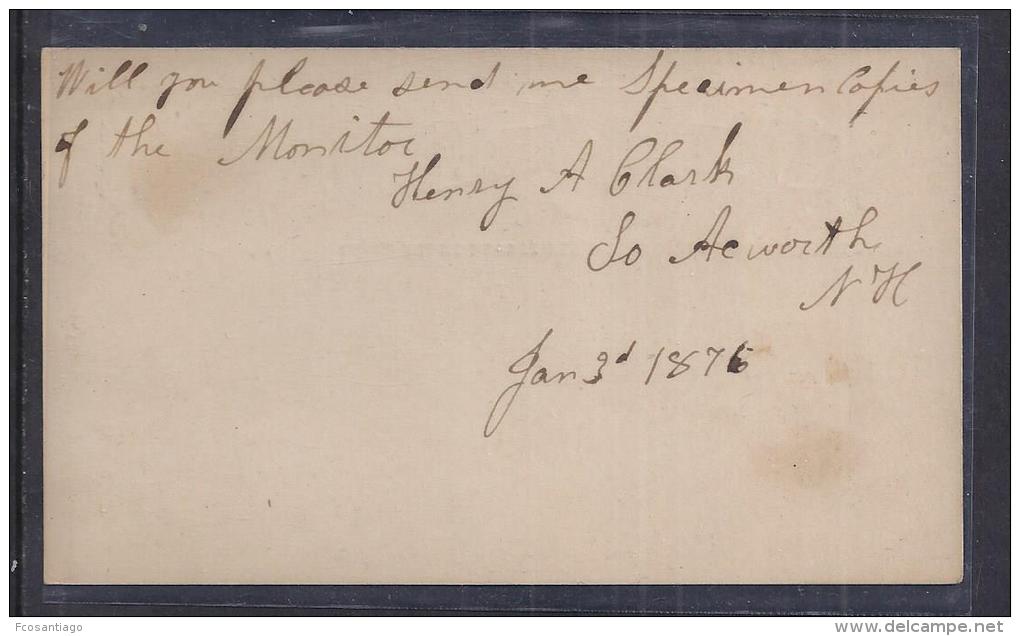 Will you please send me Specimen Copies
of the Monitor
Henry A Clark
So Acworth
N H
Jan 3d 1876
Fcosantiago
www.delcampe.net